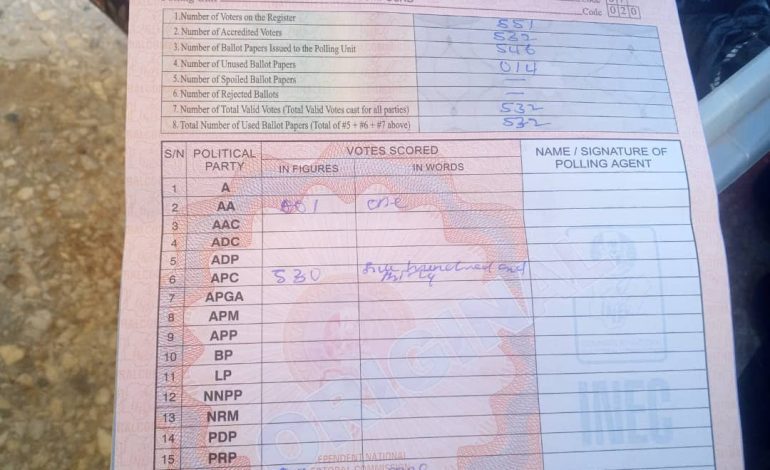 Code 020
1.Number of Voters on the Register 551
2.Number of Accredited Voters 532
3.Number of Ballot Papers Issued to the Polling Unit 546
4.Number of Unused Ballot Papers 014
5.Number of Spoiled Ballot Papers —
6.Number of Rejected Ballots —
7.Number of Total Valid Votes (Total Valid Votes cast for all parties) 532
8.Total Number of Used Ballot Papers (Total of #5 + #6 + #7 above) 532
S/N POLITICAL PARTY VOTES SCORED NAME / SIGNATURE OF POLLING AGENT
IN FIGURES IN WORDS
1 A
2 AA 001 one
3 AAC
4 ADC
5 ADP
6 APC 530 five hundred and thirty
7 APGA
8 APM
9 APP
10 BP
11 LP
12 NNPP
13 NRM
14 PDP
15 PRP
ORIGINAL
INEC